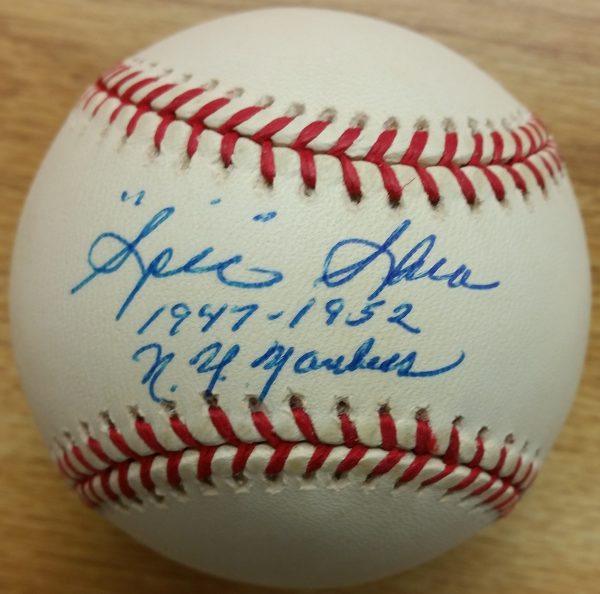 "Spec" Shea
1947-1952
N.Y. Yankees